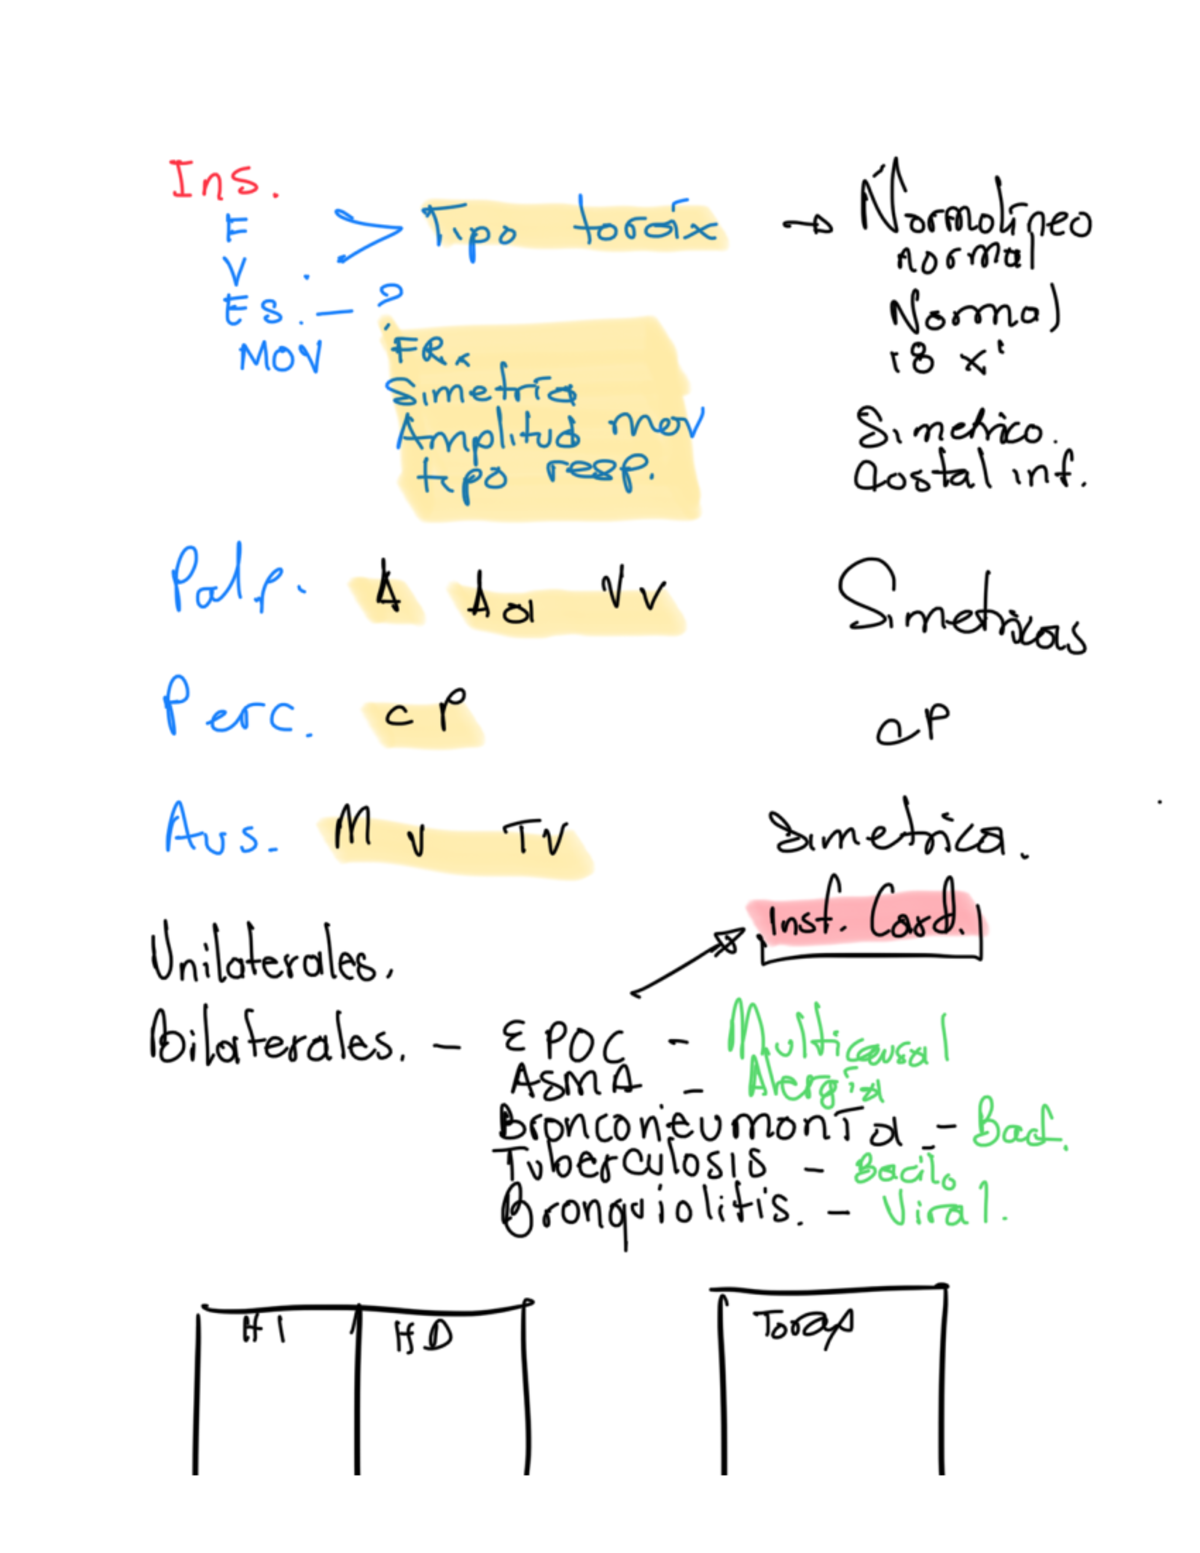 Ins.
F
V
Tipo toráix → Normolineo
normal
Es. - ?
MOV
FR.
Simetria
Amplitud mov
tipo resp.
Normal
18 x'
Simetrico.
Costal inf.
Palp. A Aa VV Simetricas
Perc. CP CP
Aus. M V TV Simetrica.
Insf. Card.
Unilaterales.
Bilaterales. - EPOC - Multicausal
ASMA - Alergia
Bronconeumonia - Bact.
Tuberculosis - Bacilo
Bronquiolitis. - Viral.
HI HD